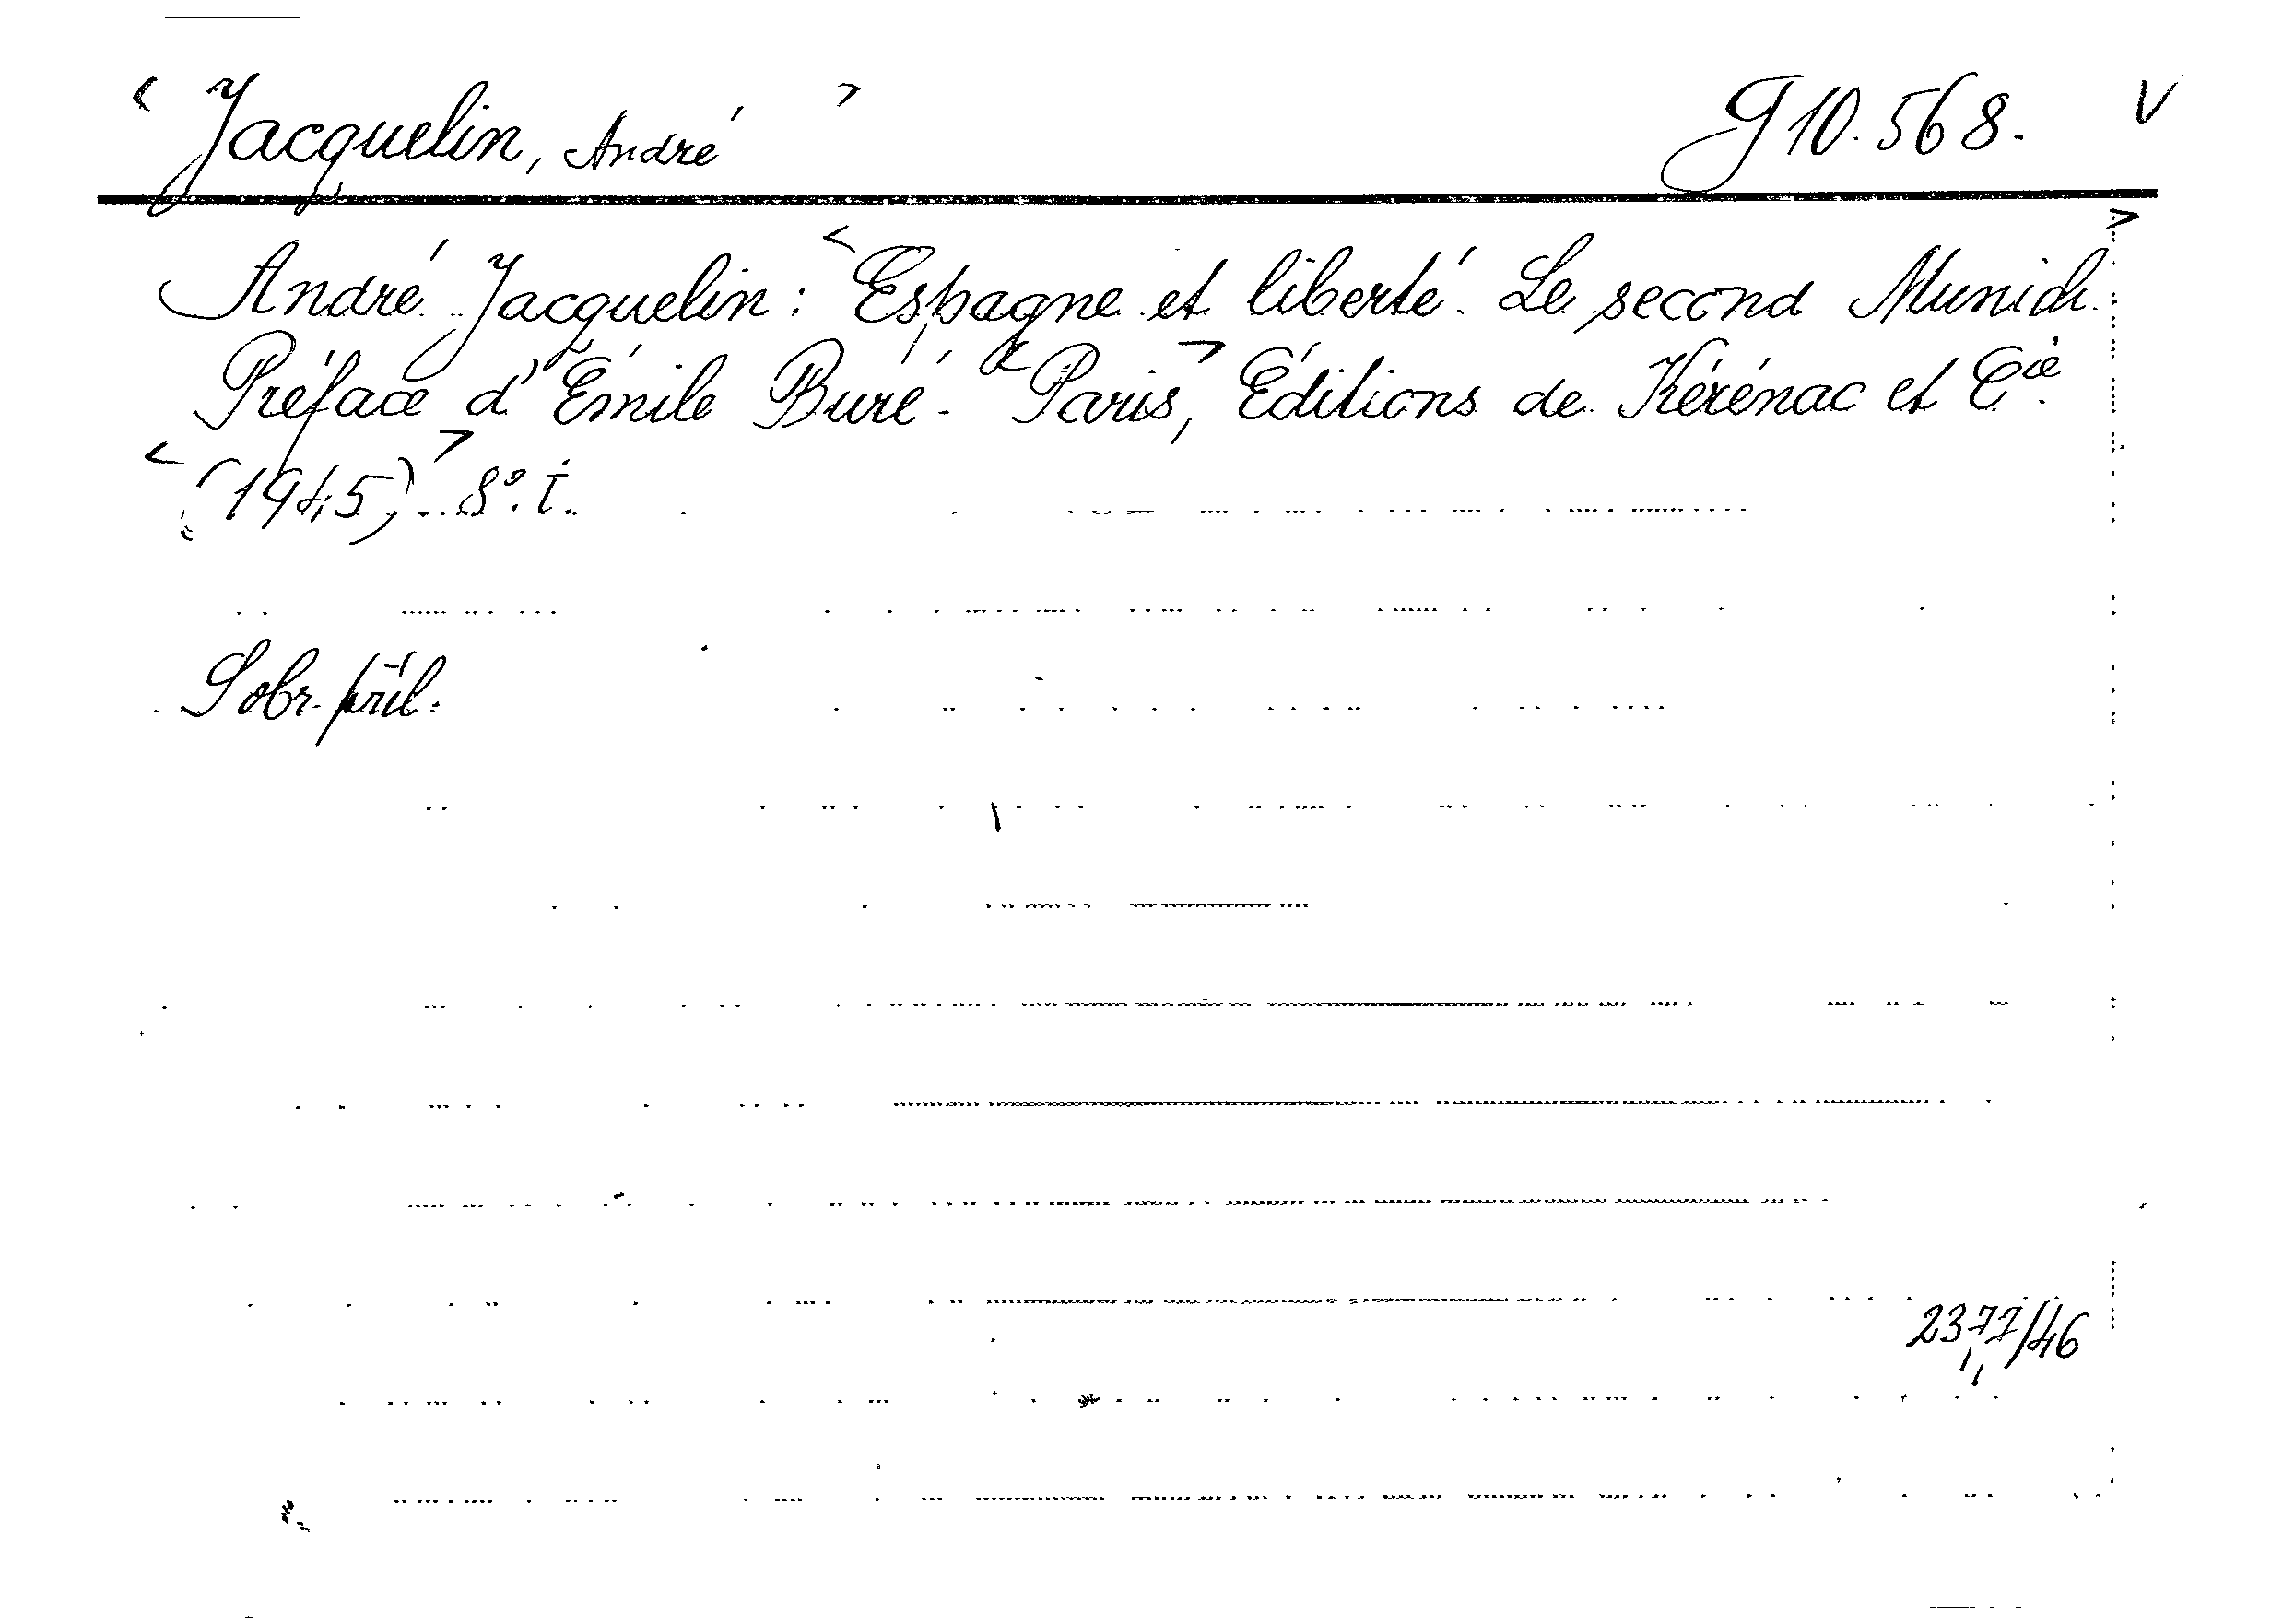 < Jacquelin, André > G 10.568. V
André Jacquelin: <Espagne et liberté. Le second Munich.>
Préface d'Émile Buré. <Paris,> Éditions de Kérénac et Cie.
<(1945)> 8°. T.
Sobr. příl.
2377/46